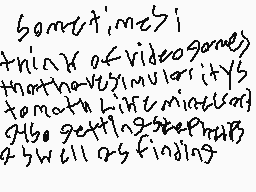 sometimes i
think of videogames
that have simularitys
to math like minecraft
also getting
as well as finding